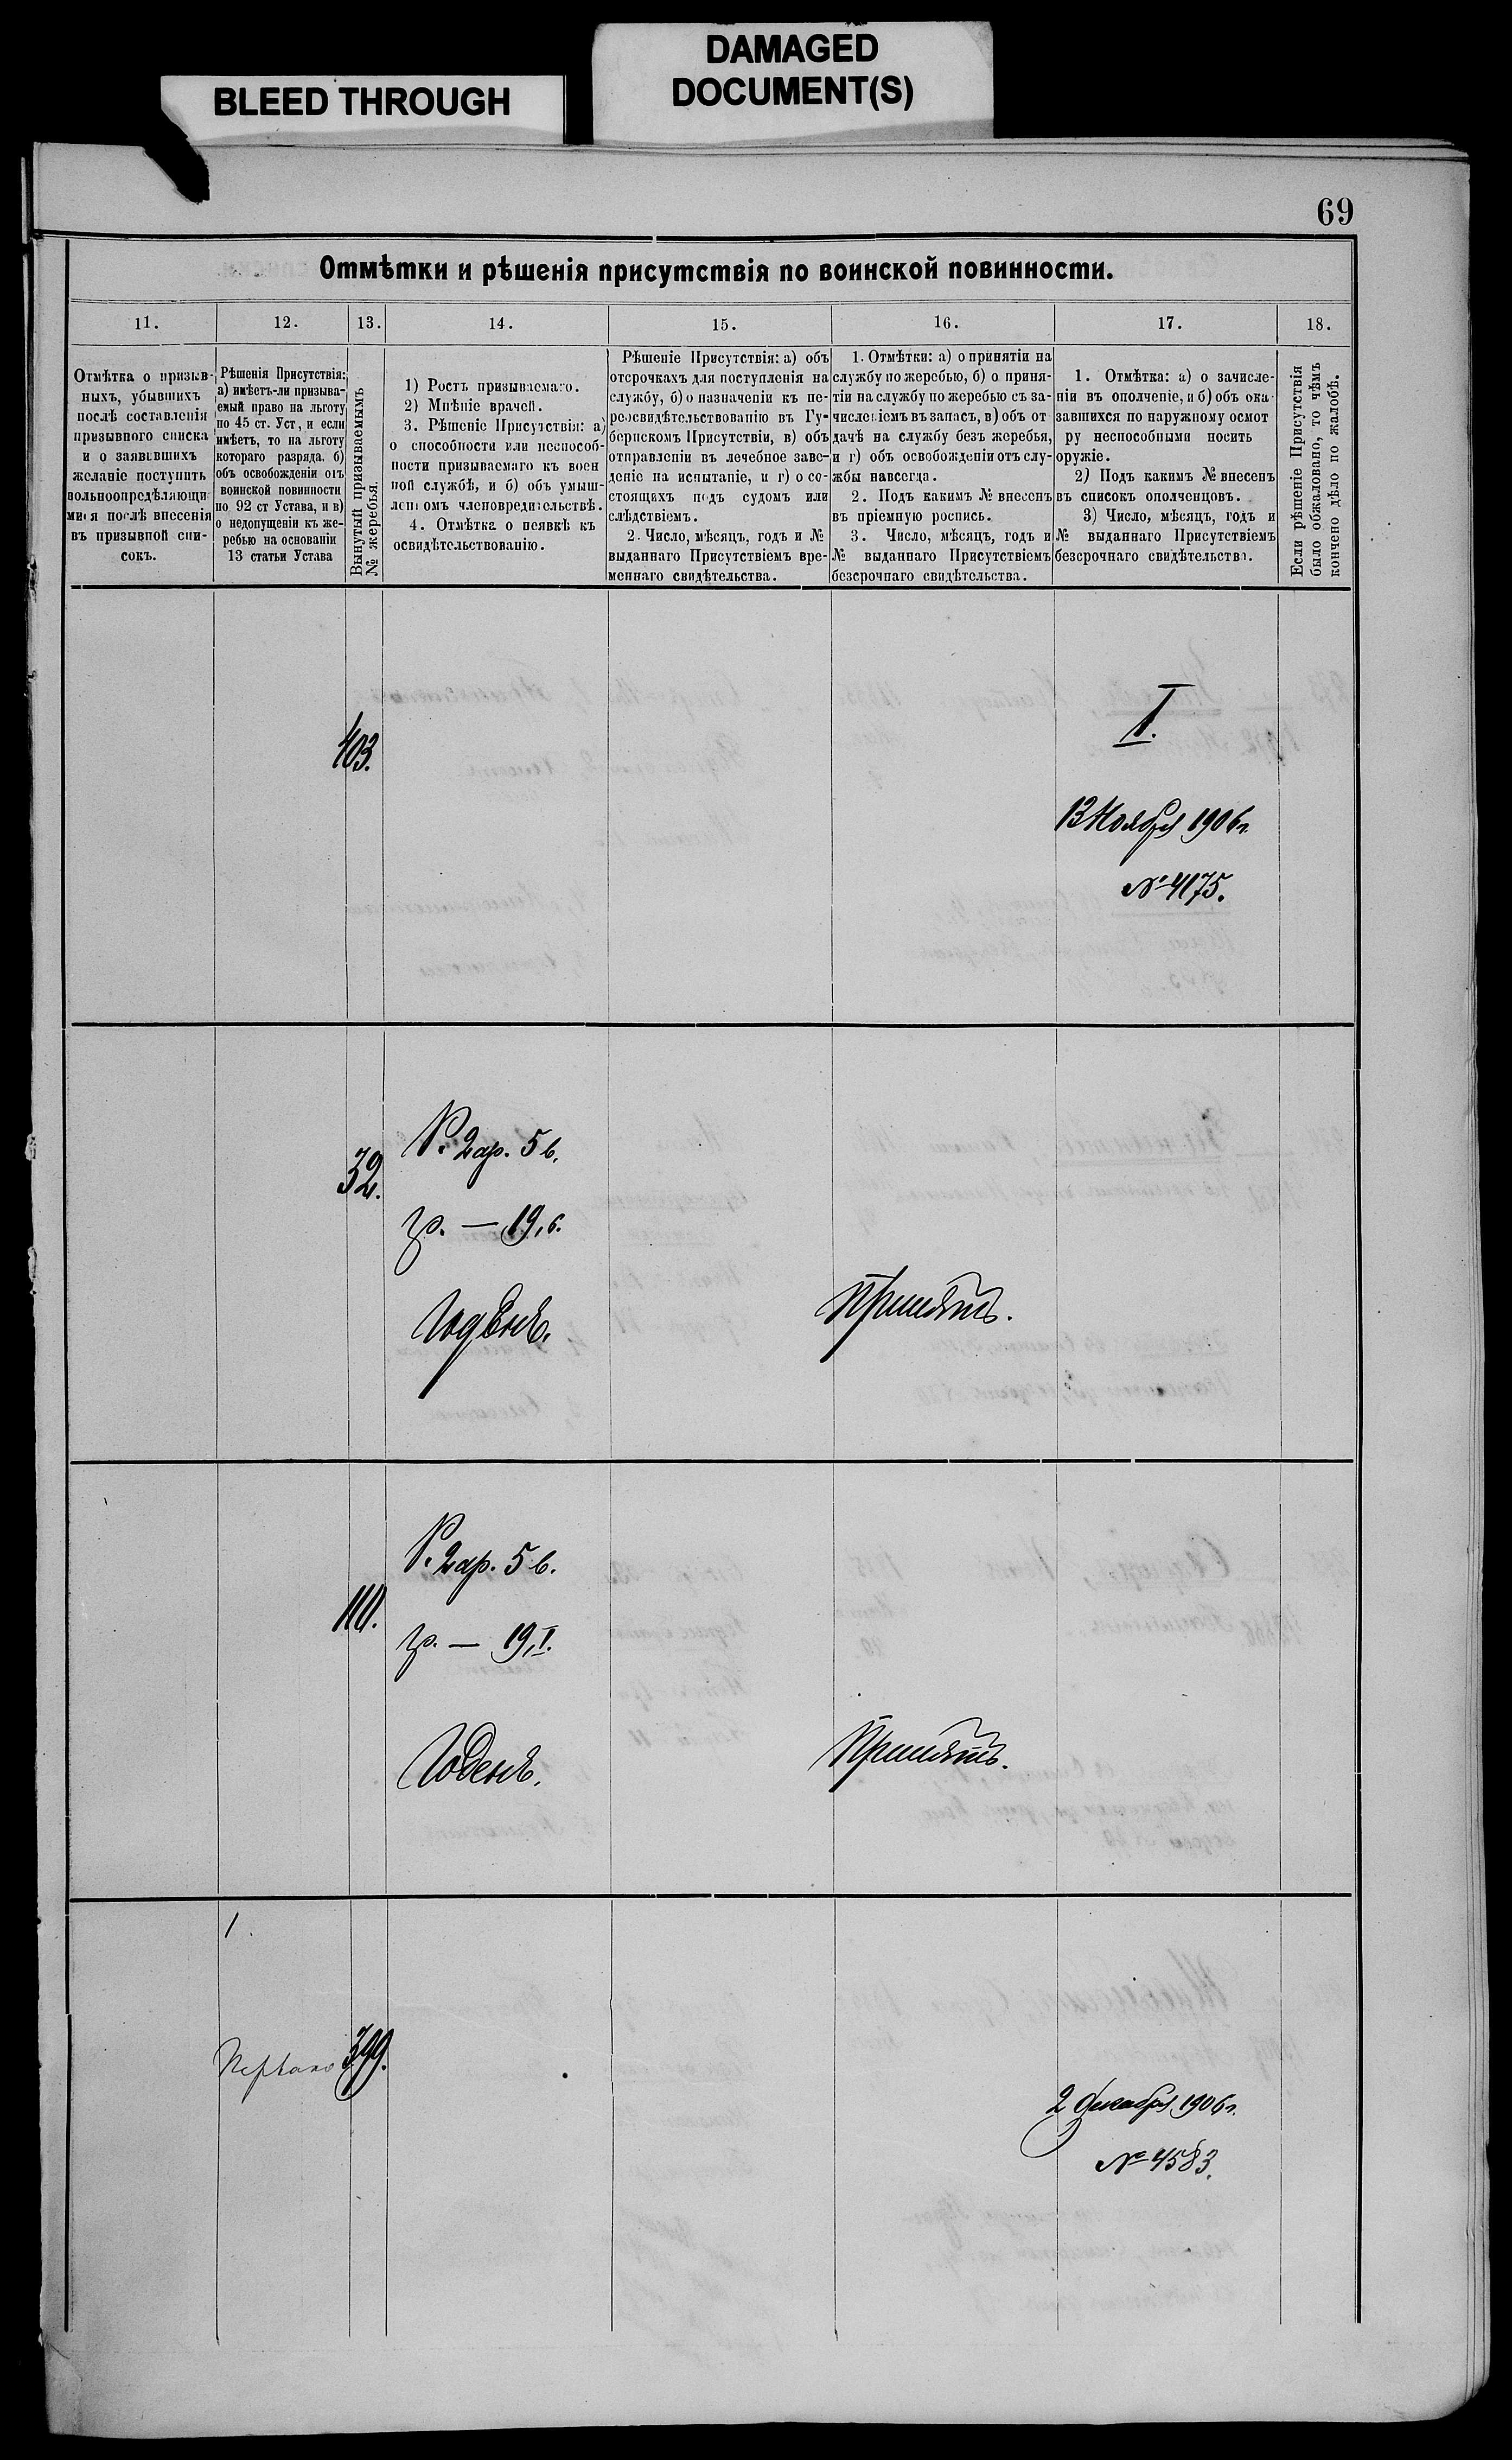 DAMAGED
DOCUMENT(S)
BLEED THROUGH
69
Отмѣтки и рѣшенія присутствія по воинской повинности.
11. 12. 13. 14. 15. 16. 17. 18.
Отмѣтка о призыв-
ныхъ, убывшихъ
послѣ составленія
призывного списка
и о заявившихъ
желаніе поступить
вольноопредѣляющи
мися послѣ внесенія
въ призывной спи-
сокъ.
Рѣшенія Присутствія:
а) имѣетъ-ли призыва-
емый право на льготу
по 45 ст. Уст, и если
имѣетъ, то на льготу
котораго разряда. б)
объ освобожденіи отъ
воинской повинности
по 92 ст Устава, и в)
о недопущеніи къ же-
ребью на основаніи
13 статьи Устава
Вынутый призываемымъ
№ жеребья.
1) Ростъ призываемаго.
2) Мнѣніе врачей.
3. Рѣшеніе Присутствія: а)
о способности или неспособ-
ности призываемаго къ воен
ной службѣ, и б) объ умыш-
ленномъ членовредительствѣ.
4. Отмѣтка о неявкѣ къ
освидѣтельствованію.
Рѣшеніе Присутствія: а) объ
отсрочкахъ для поступленія на
службу, б) о назначеніи къ пе-
реосвидѣтельствованію въ Гу-
бернскомъ Присутствіи, в) объ
отправленіи въ лечебное заве-
деніе на испытаніе, и г) о со-
стоящихъ подъ судомъ или
слѣдствіемъ.
2. Число, мѣсяцъ, годъ и №
выданнаго Присутствіемъ вре-
меннаго свидѣтельства.
1. Отмѣтки: а) о принятіи на
службу по жеребью, б) о приня-
тіи на службу по жеребью съ за-
численіемъ въ запасъ, в) объ от
дачѣ на службу безъ жеребья,
и г) объ освобожденіи отъ слу-
жбы навсегда.
2. Подъ какимъ № внесенъ
въ пріемную роспись.
3. Число, мѣсяцъ, годъ и
№ выданнаго Присутствіемъ
безсрочнаго свидѣтельства.
1. Отмѣтка: а) о зачисле-
ніи въ ополченіе, и б) объ ока-
завшихся по наружному осмот
ру неспособными носить
оружіе.
2) Подъ какимъ № внесенъ
въ список ополченцовъ.
3) Число, мѣсяцъ, годъ и
№ выданнаго Присутствіемъ
безсрочнаго свидѣтельства.
Если рѣшеніе Присутствія
было обжаловано, то чѣмъ
кончено дѣло по жалобѣ.
403.
I.
13 Ноября 1906 г.
№ 4175.
32.
Р. 2 ар. 5 в.
гр. — 19,6.
Годенъ.
Принятъ.
110.
Р. 2 ар. 5 в.
гр. — 19,
Годенъ.
Принятъ.
1.
399.
2 декабря 1906 г.
№ 4583.